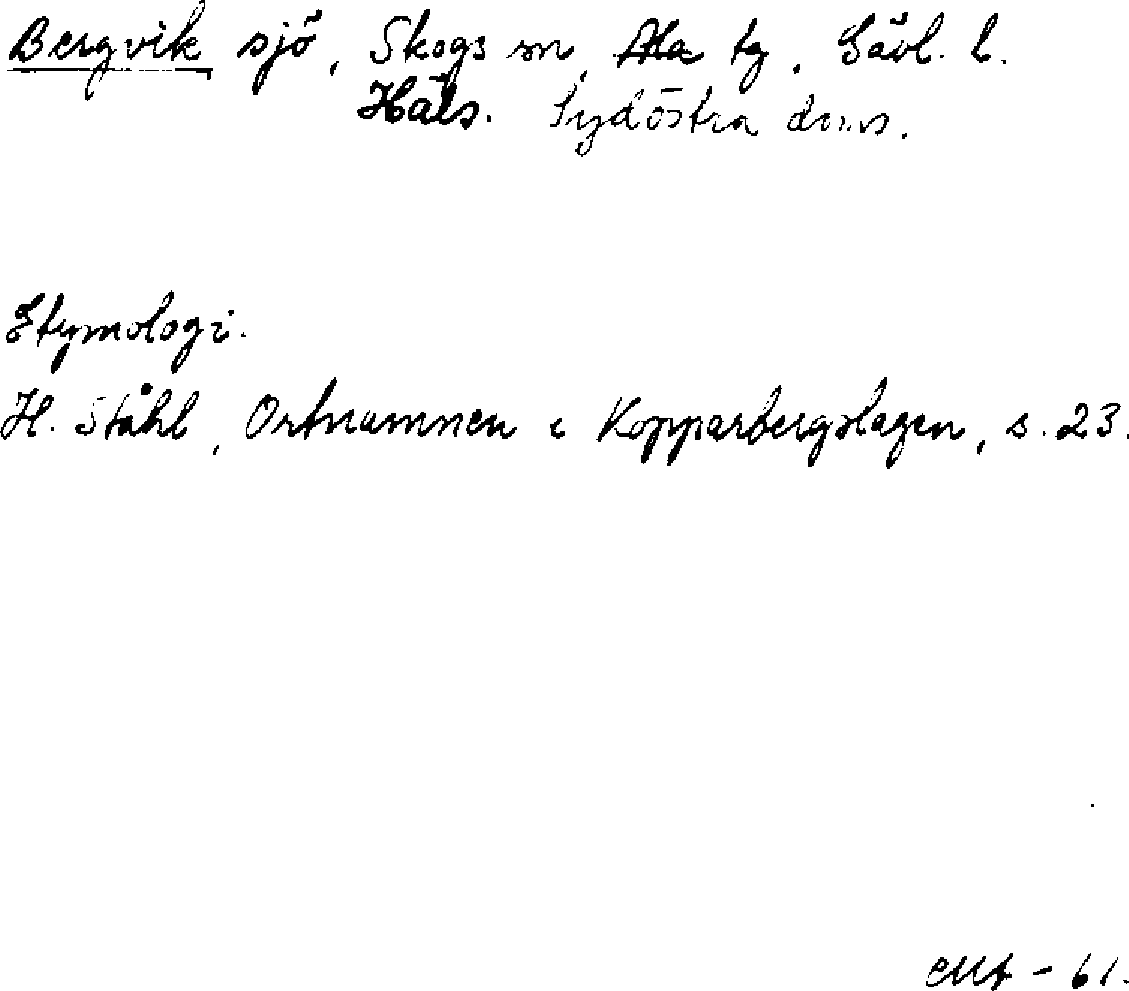 Bergvik sjö, Skogs sn, Ala tg, Gävl. l.
Häls. Sydöstra doms.
Etymologi.
H. Ståhl, Ortnamnen i Kopparbergslagen, s. 23.
- 61.